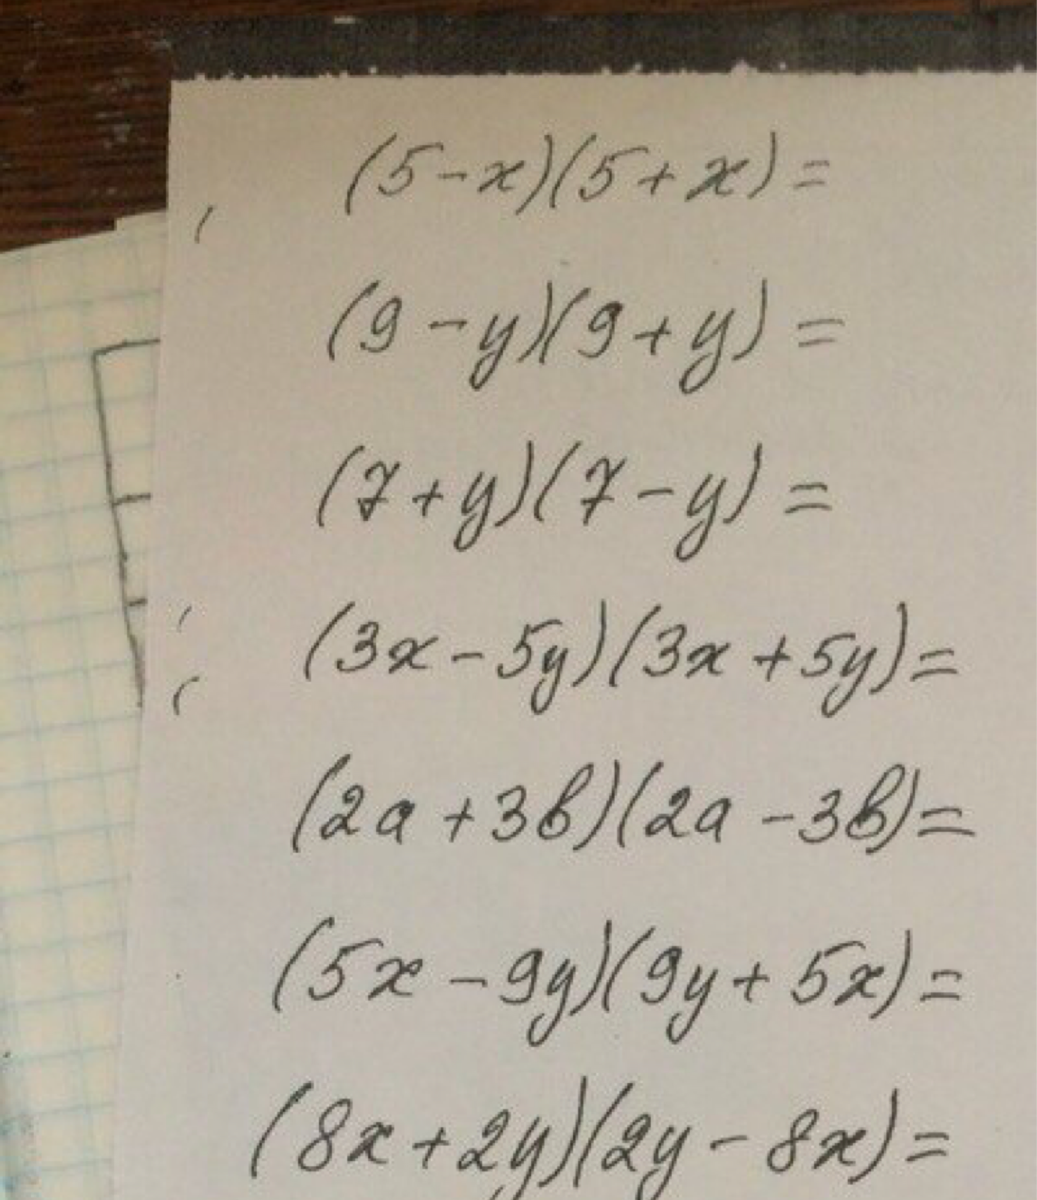 (5-x)(5+x)=
(9-y)(9+y)=
(7+y)(7-y)=
(3x-5y)(3x+5y)=
(2a+3b)(2a-3b)=
(5x-9y)(9y+5x)=
(8x+2y)(2y-8x)=